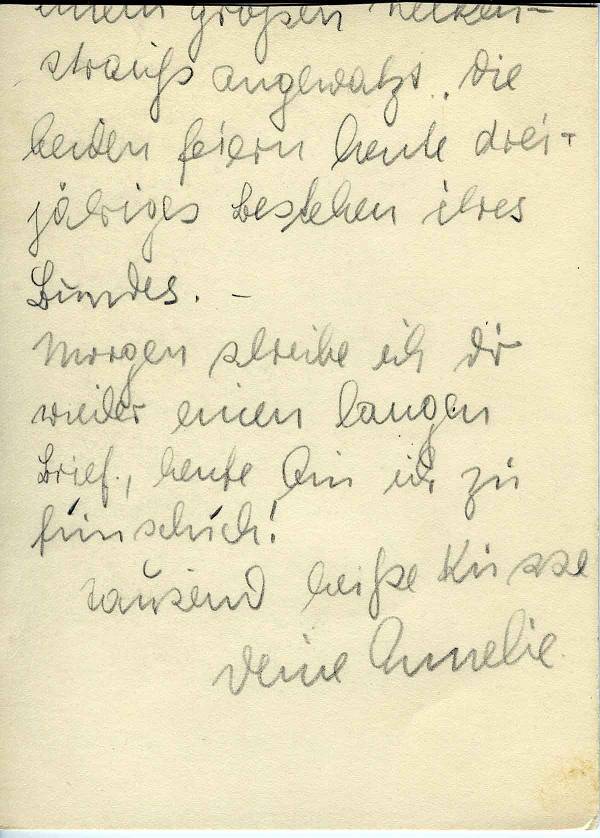 einem großen Nelken-
strauß angewalzt. Die
beiden feiern heute drei-
jähriges Bestehen ihres
Bundes. –
Morgen schreibe ich dir
wieder einen langen
Brief, heute bin ich zu
Tausend heiße Küsse
Deine Annelie.